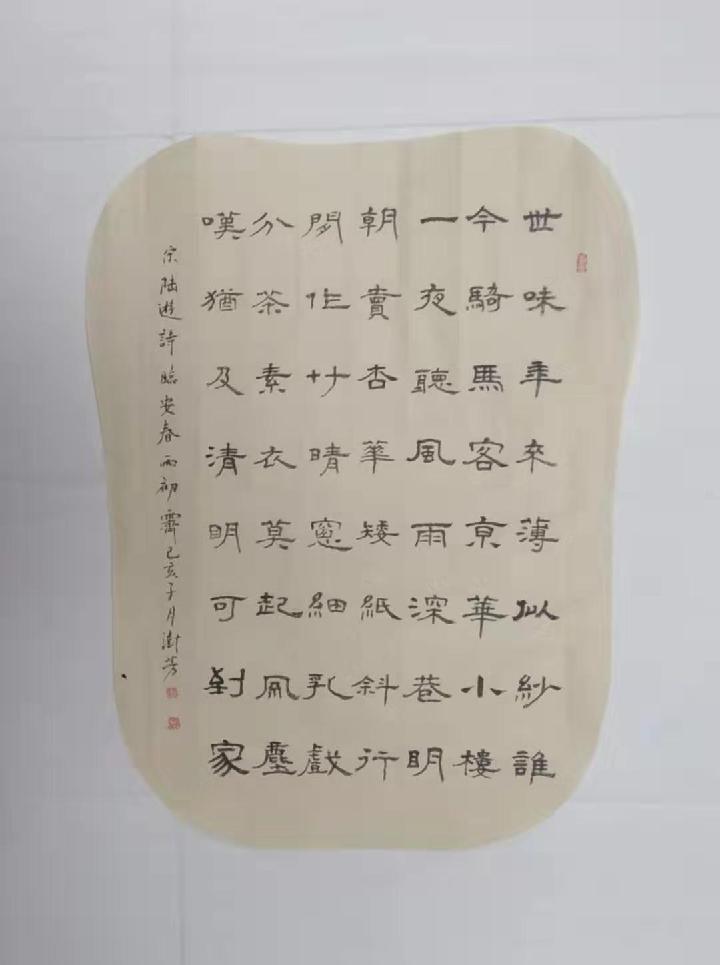 世味年来薄似紗誰
今騎馬客京華小樓
一夜聽風雨深巷眀
朝賣杏華矮紙斜行
閒作艸晴窻細乳戲
分茶素衣莫起風塵
嘆猶及清眀可到家
宋陸遊詩臨安春雨初霽己亥子月澍芳